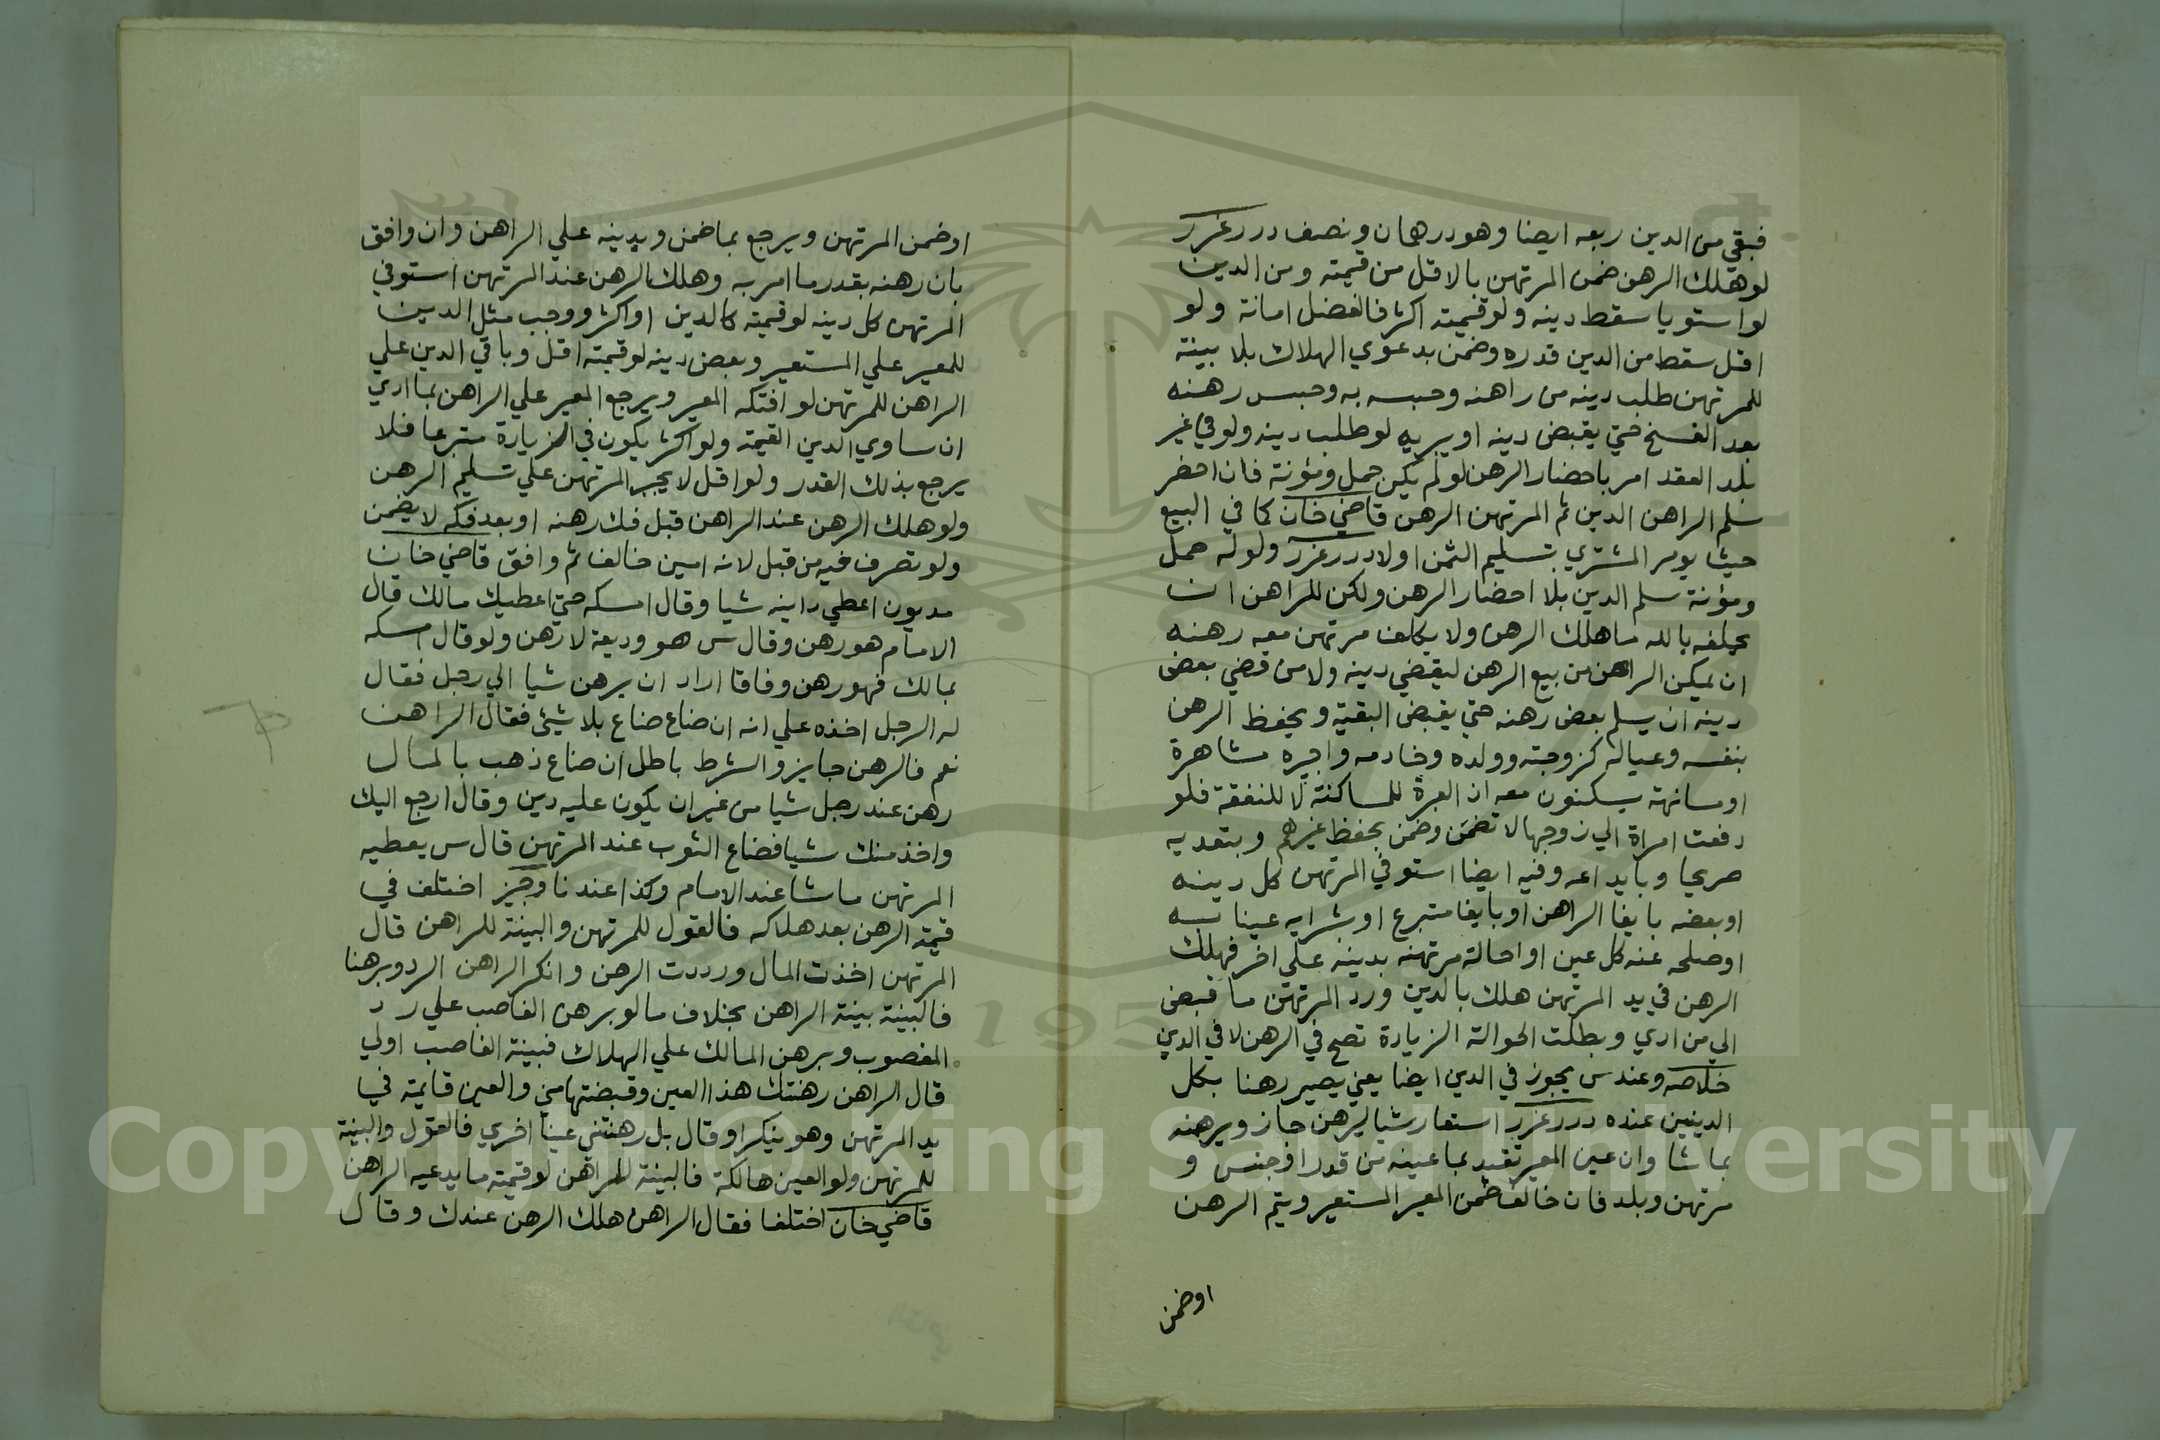 فبقي من الدين ربعه ايضا وهو درهمان ونصف درر غرر
لو هلك الرهن ضمن المرتهن بالاقل من قيمته ومن الدين
لو استويا سقط دينه ولو قيمته اكثر فالفضل امانة ولو
اقل سقط من الدين قدره وضمن بدعوي الهلاك بلا بينة
للمرتهن طلب دينه من راهنه وحبسه به وحبس رهنه
بعد الفسخ حتي يقبض دينه او يبريه لو طلب دينه ولو في غير
بلد العقد امر باحضار الرهن لو لم يكن حمل ومؤنة فان احضر
سلم الراهن الدين ثم المرتهن الرهن قاضي خان كما في البيع
حيث يومر المشتري بتسليم الثمن اولا درر غرر ولو له حمل
ومؤنة سلم الدين بلا احضار الرهن ولكن للراهن ان
يحلفه بالله ما هلك الرهن ولا يكلف مرتهن معه رهنه
ان يمكن الراهن من بيع الرهن ليقضي دينه ولا من قضي بعض
دينه ان يسلم بعض رهنه حتي يقبض البقية ويحفظ الرهن
بنفسه وعياله كزوجته وولده وخادمه واجيره مشاهرة
او مسانهة يسكنون معه اذ العبرة للمساكنة لا للنفقة فلو
دفعت امراة الي زوجها لا تضمن وضمن بحفظ غيرهم وبتعديه
صريحا وبايداعه وفيه ايضا استوفي المرتهن كل دينه
او بعضه بايفا الراهن او بايفا متبرع او بشرايه عينا به
او صلحه عنه كل عين او احالة مرتهنه بدينه علي اخر فهلك
الرهن في يد المرتهن هلك بالدين ورد المرتهن ما قبض
الي من ادي وبطلت الحوالة الزيادة تصح في الرهن لا في الدين
خلاصه وعند س يجوز في الدين ايضا يعني يصير رهنا بكل
الدينين عنده درر غرر استعار شيا ليرهن جاز ويرهنه
بما شا وان عين المعير تقيد بما عينه من قدر او جنس و
مرتهن وبلد فان خالف ضمن المعير المستعير ويتم الرهن
اوضمن
او ضمن المرتهن ويرجع بما ضمن وبدينه علي الراهن وان وافق
بان رهنه بقدر ما امر به وهلك الرهن عند المرتهن استوفي
المرتهن كل دينه لو قيمته كالدين او اكثر ووجب مثل الدين
للمعير علي المستعير وبعض دينه لو قيمته اقل وباقي الدين علي
الراهن للمرتهن لو افتكه المعير ويرجع المعير علي الراهن بما ادي
ان ساوي الدين القيمة ولو اكثر يكون في الزيادة متبرعا فلا
يرجع بذلك القدر ولو اقل لا يجبر المرتهن علي تسليم الرهن
ولو هلك الرهن عند الراهن قبل فك رهنه او بعد فكه لا يضمن
ولو تصرف فيه من قبل لانه امين خالف ثم وافق قاضي خان
مديون اعطي داينه شيا وقال امسكه حتي اعطيك مالك قال
الامام هو رهن وقال س هو وديعة لا رهن ولو قال امسكه
بمالك فهو رهن وفاقا اراد ان يرهن شيا الي رجل فقال
له الرجل اخذه علي انه ان ضاع ضاع بلا شيئ فقال الراهن
نعم فالرهن جايز والشرط باطل ان ضاع ذهب بالمال
رهن عند رجل شيا من غير ان يكون عليه دين وقال ارجع اليك
واخذ منك شيا فضاع الثوب عند المرتهن قال س يعطيه
المرتهن ما شا عند الامام وكذا عندنا وجيز اختلف في
قيمة الرهن بعد هلاكه فالقول للمرتهن والبينة للراهن قال
المرتهن اخذت المال ورددت الرهن وانكر الراهن الرد وبرهنا
فالبينة بينة الراهن بخلاف ما لو برهن الغاصب علي رد
المغصوب وبرهن المالك علي الهلاك فبينة الغاصب اولي
قال الراهن رهنتك هذا العين وقبضتها مني والعين قايمة في
يد المرتهن وهو ينكر او قال بل رهنتني عينا اخري فالقول والبينة
للمرتهن ولو العين هالكة فالبينة للراهن لو قيمة ما يدعيه الراهن
قاضي خان اختلفا فقال الراهن هلك الرهن عندك وقال
1957
Copyright © King Saud University